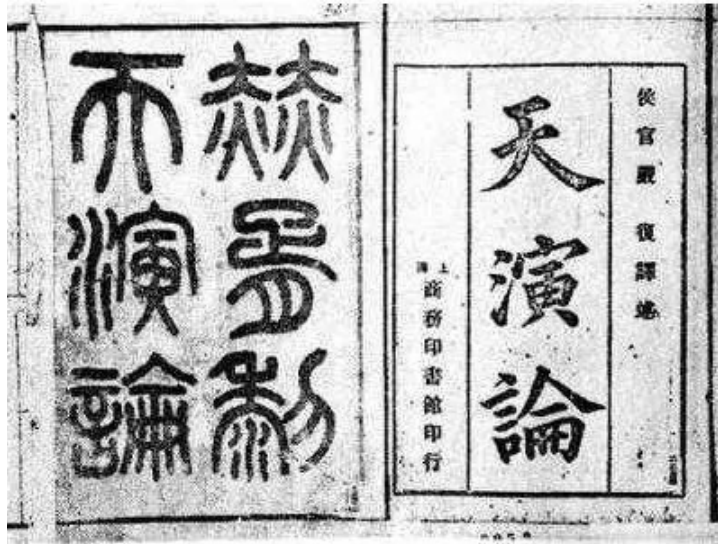 侯官嚴復譯述
天演論
上海商務印書館印行
赫胥黎
天演論